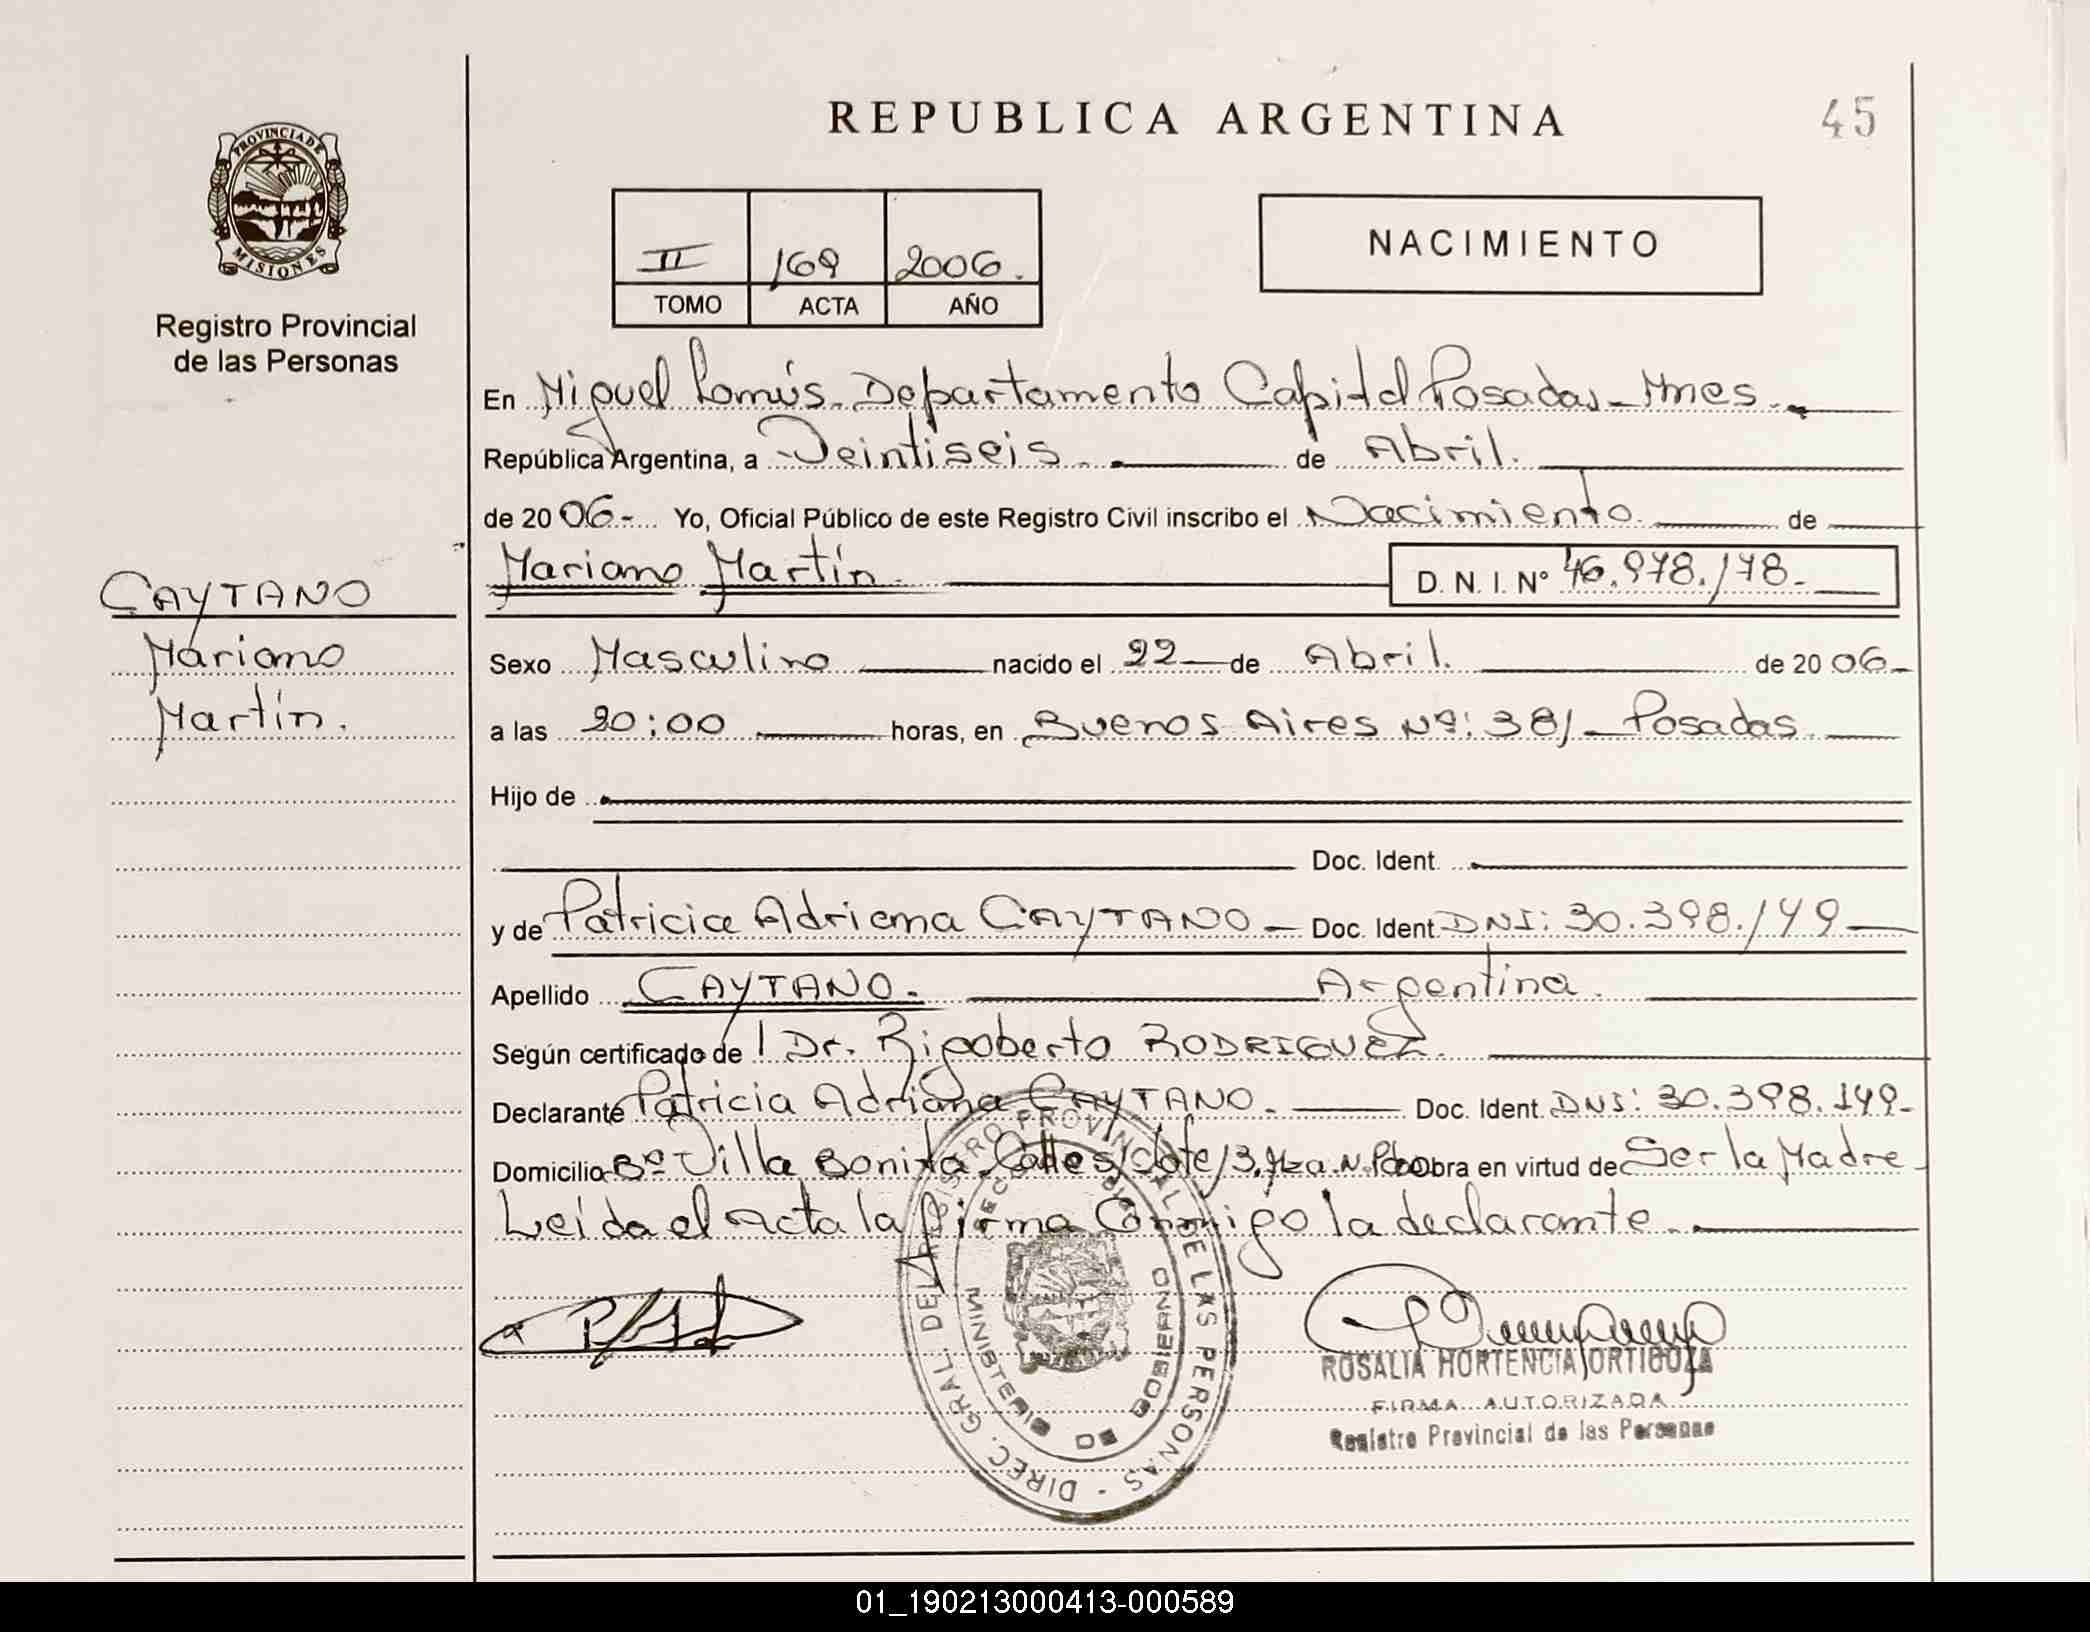 REPUBLICA ARGENTINA
45
PROVINCIA DE
MISIONES
Registro Provincial
de las Personas
II 169 2006.
TOMO ACTA AÑO
NACIMIENTO
En Miguel Lanús. Departamento Capital Posadas - Mnes.
República Argentina, a Veintiseis. de Abril.
de 20 06.- Yo, Oficial Público de este Registro Civil inscribo el Nacimiento. de
Mariano Martín. D. N. I. N° 46.978.178.-
CAYTANO
Mariano
Martín.
Sexo Masculino nacido el 22 de Abril. de 20 06-
a las 20:00 horas, en Buenos Aires Nº: 381 - Posadas.
Hijo de
Doc. Ident.
y de Patricia Adriana CAYTANO - Doc. Ident. DNI: 30.398.149
Apellido CAYTANO. Argentina.
Según certificado de l Dr. Rigoberto RODRIGUEZ.
Declarante Patricia Adriana CAYTANO. Doc. Ident. DNI: 30.398.149.
Domicilio Bº Villa Bonita Calle s/ Lote 13. Mza. N. obra en virtud de Ser la Madre
Leída el Acta la firma Conmigo la declarante.
DIREC. GRAL. DEL REGISTRO PROVINCIAL DE LAS PERSONAS
MINISTERIO DE GOBIERNO
ROSALIA HORTENCIA ORTIGOZA
FIRMA AUTORIZADA
Registro Provincial de las Personas
01_190213000413-000589